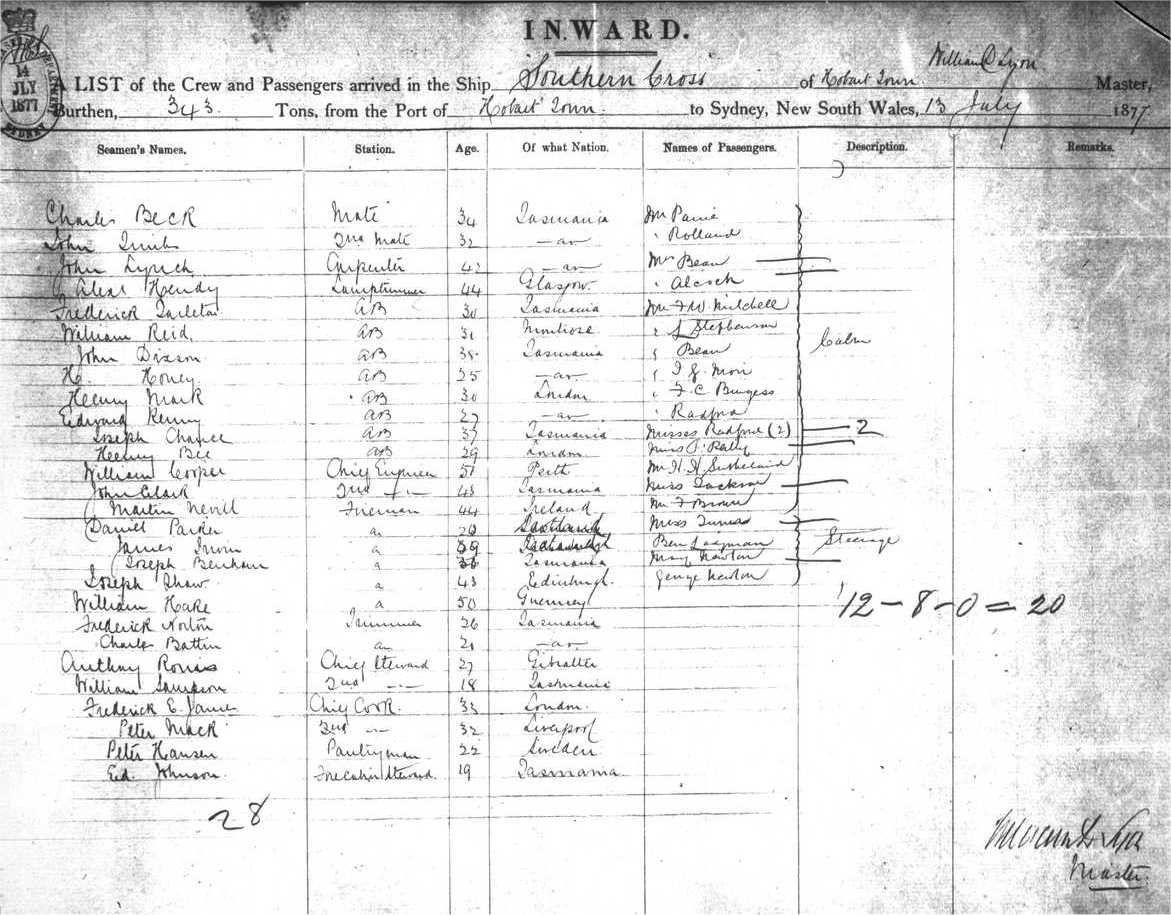 INWARD.
14
JLY
1877
SYDNEY
William D Lyon
A LIST of the Crew and Passengers arrived in the Ship Southern Cross of Hobart Town Master,
Burthen, 343 Tons, from the Port of Hobart Town to Sydney, New South Wales, 13 July 1877
Seamen's Names. Station. Age. Of what Nation. Names of Passengers. Description. Remarks.
Charles Beck Mate 34 Tasmania Mr
John Smith 2nd Mate 32 — do — " Rolland
John Lynch Carpenter 42 — do — Mrs Bean
Alexr Hendy Lamptrimmer 44 Glasgow " Alcock
Frederick Tarleton AB 30 Tasmania Mr F W Mitchell
William Reid AB 31 Montrose " J Stephenson
John Dixson AB 38 Tasmania " Bean Cabin
H. Honey AB 25 — do — "
Henry Mark AB 30 London " F. C Burgess
Edward Kenny AB 27 — do — " Radford
Joseph Chancel AB 37 Tasmania Misses Radford (2) — 2
Henry Bee AB 29 London Miss
William Cooper Chief Engineer 51 Perth Mr H. H Sutherland
John Clark 2nd — " — 48 Tasmania Miss Jackson
Martin Nevill Fireman 44 Ireland Mr F Brown
Daniel Parker " 20 Miss
James " 39 Ben Layman Steerage
Joseph Benham " 36 Tasmania Mary Newton
Joseph Shaw " 43 Edinburgh George Newton
William Hake " 50 Guernsey 12 – 8 – 0 = 20
Frederick Norton Trimmer 26 Tasmania
Charles Battin do 21 — do —
Anthony Chief Steward 27 Gibralter
William Sampson 2nd — " — 18 Tasmania
Frederick E. James Chief Cook 33 London
Peter Mack 2nd — " — 32 Liverpool
Peter Hansen Pantryman 22 Sweden
Ed. Johnson Forecabin Steward 19 Tasmania
28
William D Lyon
Master